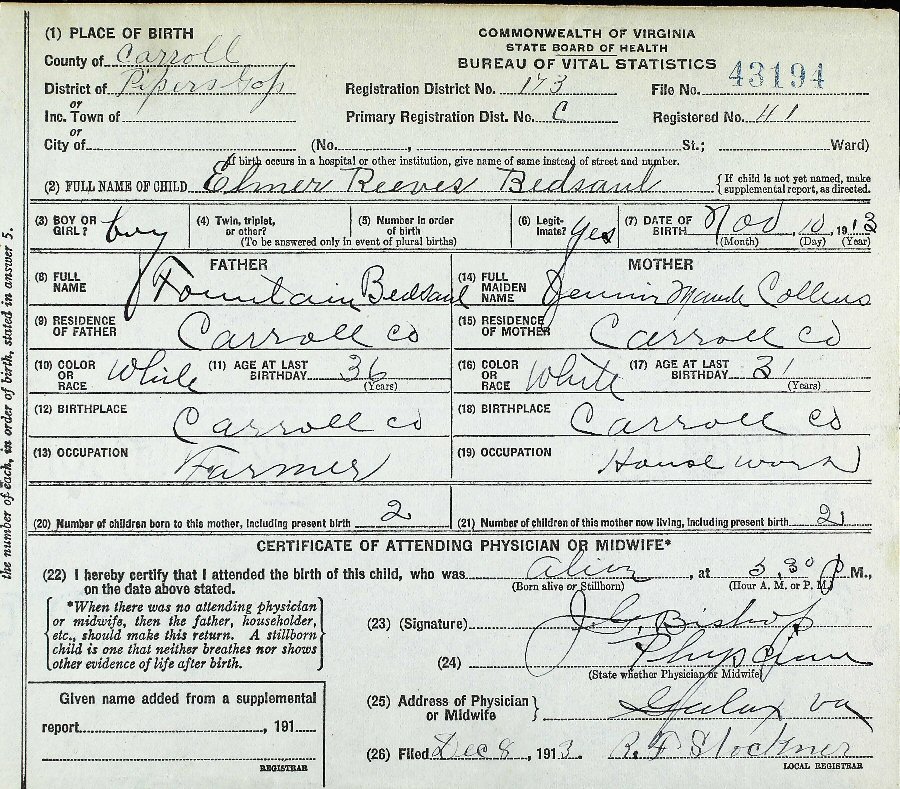 (1) PLACE OF BIRTH
County of Carroll
District of Pipers Gap
or
Inc. Town of
or
City of
COMMONWEALTH OF VIRGINIA
STATE BOARD OF HEALTH
BUREAU OF VITAL STATISTICS
Registration District No. 173 File No. 43194
Primary Registration Dist. No. C Registered No. 41
(No. , St.; Ward)
If birth occurs in a hospital or other institution, give name of same instead of street and number.
(2) FULL NAME OF CHILD Elmer Reeves Bedsaul { If child is not yet named, make supplemental report, as directed.
(3) BOY OR GIRL? boy (4) Twin, triplet, or other? (5) Number in order of birth (To be answered only in event of plural births) (6) Legitimate? Yes (7) DATE OF BIRTH Nov 10, 1913
(Month) (Day) (Year)
FATHER MOTHER
(8) FULL NAME Fountain Bedsaul (14) FULL MAIDEN NAME Jennie Maude Collins
(9) RESIDENCE OF FATHER Carroll co (15) RESIDENCE OF MOTHER Carroll co
(10) COLOR OR RACE White (11) AGE AT LAST BIRTHDAY 36 (Years) (16) COLOR OR RACE White (17) AGE AT LAST BIRTHDAY 31 (Years)
(12) BIRTHPLACE Carroll co (18) BIRTHPLACE Carroll co
(13) OCCUPATION Farmer (19) OCCUPATION House work
(20) Number of children born to this mother, including present birth 2 (21) Number of children of this mother now living, including present birth 2
CERTIFICATE OF ATTENDING PHYSICIAN OR MIDWIFE*
(22) I hereby certify that I attended the birth of this child, who was alive, at 3,30 P M.,
on the date above stated. (Born alive or Stillborn) (Hour A. M. or P. M.)
*When there was no attending physician
or midwife, then the father, householder,
etc., should make this return. A stillborn
child is one that neither breathes nor shows
other evidence of life after birth.
(23) (Signature) J. G. Bishop
(24) Physician
(State whether Physician or Midwife)
Given name added from a supplemental
report , 191
REGISTRAR
(25) Address of Physician or Midwife } Galax va
(26) Filed Dec 8, 1913. R. F Stockner
LOCAL REGISTRAR
the number of each, in order of birth, stated in answer 5.